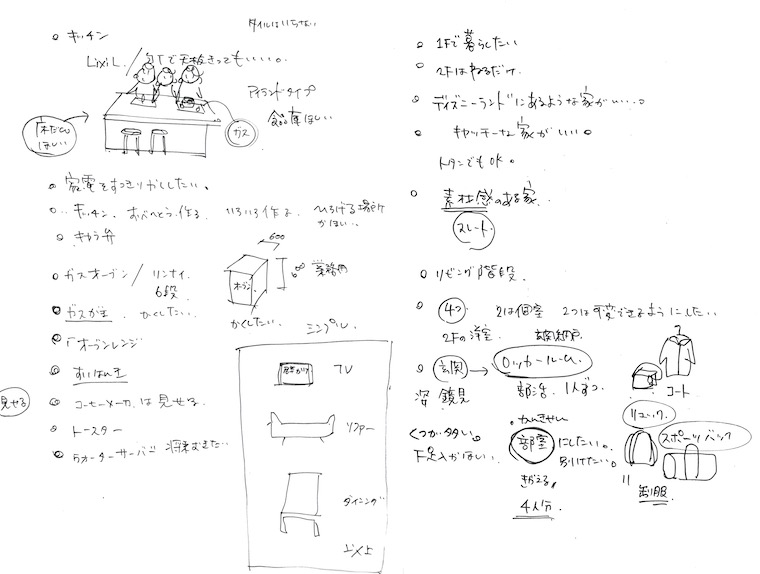 タイルはいらない
キッチン
Lixil
アイランドタイプ
食品庫ほしい
ガス
ほしい
家電をすっきりかくしたい。
キッチン、おべんとう作る いろいろ作る ひろげる場所がほしい
ガスオーブン/リンナイ
6段
600
600
業務用
オーブン
ガスがま かくしたい
かくしたい シンプル
オーブンレンジ
すいはんき
見せる
コーヒーメーカは見せる
トースター
ウォーターサーバー 将来おきたい
TV
ソファー
ダイニング
1Fで暮らしたい
2Fはねるだけ。
ディズニーランドにあるような家がいい。
キャッチーな家がいい
トタンでもOK。
素材感のある家。
スレート
リビング階段。
4つ 2は個室 2つは可変できるようにしたい
2Fの洋室
玄関
ロッカールーム
部活 1人ずつ
姿鏡
くつが多い。
下足入がほしい。
部室にしたい。
分けたい。
きがえる
4人分
コート
リュック
スポーツバック
制服